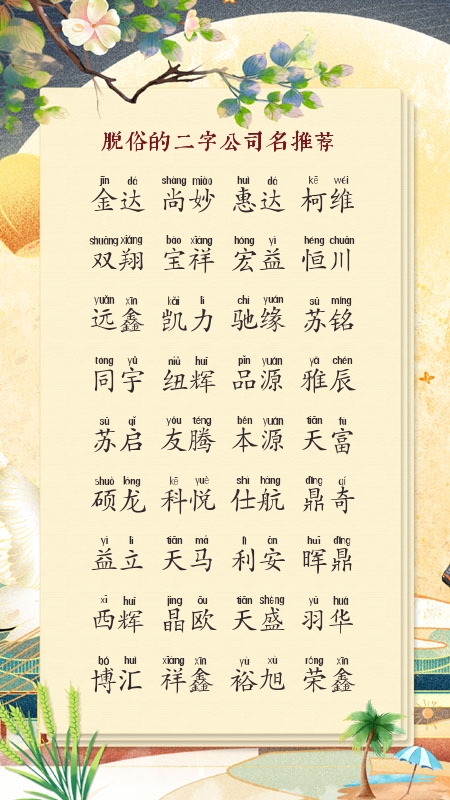 脱俗的二字公司名推荐
jīn dá shàng miào huì dá kē wéi
金达 尚妙 惠达 柯维
shuāng xiáng bǎo xiáng hóng yì héng chuān
双翔 宝祥 宏益 恒川
yuǎn xīn kǎi lì chí yuán sū míng
远鑫 凯力 驰缘 苏铭
tóng yǔ niǔ huī pǐn yuán yǎ chén
同宇 纽辉 品源 雅辰
sū qǐ yǒu téng běn yuán tiān fù
苏启 友腾 本源 天富
shuò lóng kē yuè shì háng dǐng qí
硕龙 科悦 仕航 鼎奇
yì lì tiān mǎ lì ān huī dǐng
益立 天马 利安 晖鼎
xī huī jīng ōu tiān shèng yǔ huá
西辉 晶欧 天盛 羽华
bó huì xiáng xīn yù xù róng xīn
博汇 祥鑫 裕旭 荣鑫